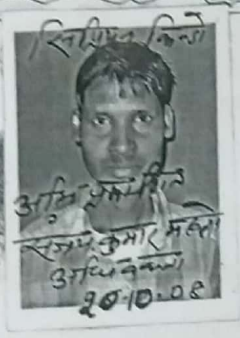 अभि प्रमाणित
संजय कुमार महतो
अधिवक्ता
20-10-08